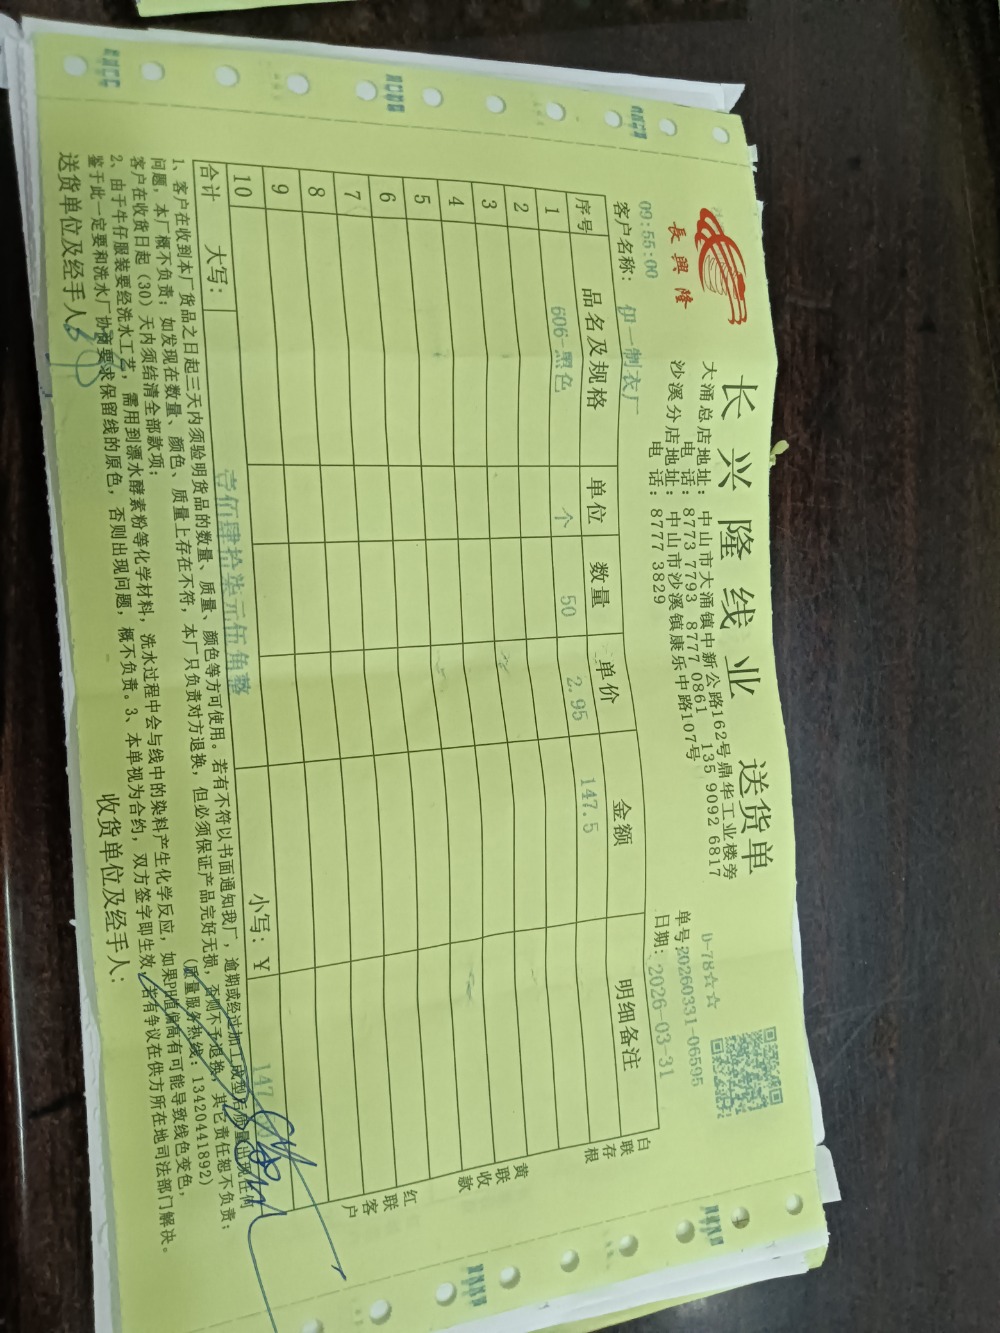 長興隆
长兴隆线业 送货单
大涌总店地址：中山市大涌镇中新公路162号鼎华工业楼旁
电 话：8773 7793 8777 0861 135 9092 6817
沙溪分店地址：中山市沙溪镇康乐中路107号
电 话：8777 3829
D-78☆☆
单号:20260331-06595
09:55:00
客户名称：伊一制衣厂
日期：2026-03-31
序号 品名及规格 单位 数量 单价 金额 明细备注
1 606-黑色 个 50 2.95 147.5
2
3
4
5
6
7
8
9
10
合计 大写：壹佰肆拾柒元伍角整 小写：¥ 147
白联存根
黄联收款
红联客户
1、客户在收到本厂货品之日起三天内须验明货品的数量、质量、颜色等方可使用。若有不符以书面通知我厂，逾期或经过加工成型后质量出现任何
问题，本厂概不负责；如发现在数量、颜色、质量上存在不符，本厂只负责对方退换，但必须保证产品完好无损，否则不予退换，其它责任恕不负责；
客户在收货日起（30）天内须结清全部款项； （质量服务热线：13420441892）
2、由于牛仔服装要经洗水工艺，需用到漂水酵素粉等化学材料，洗水过程中会与线中的染料产生化学反应，如果PH值偏高有可能导致线色变色，
鉴于此一定要和洗水厂协商要求保留线的原色，否则出现问题，概不负责。3、本单视为合约，双方签字即生效，若有争议在供方所在地司法部门解决。
送货单位及经手人： 收货单位及经手人：